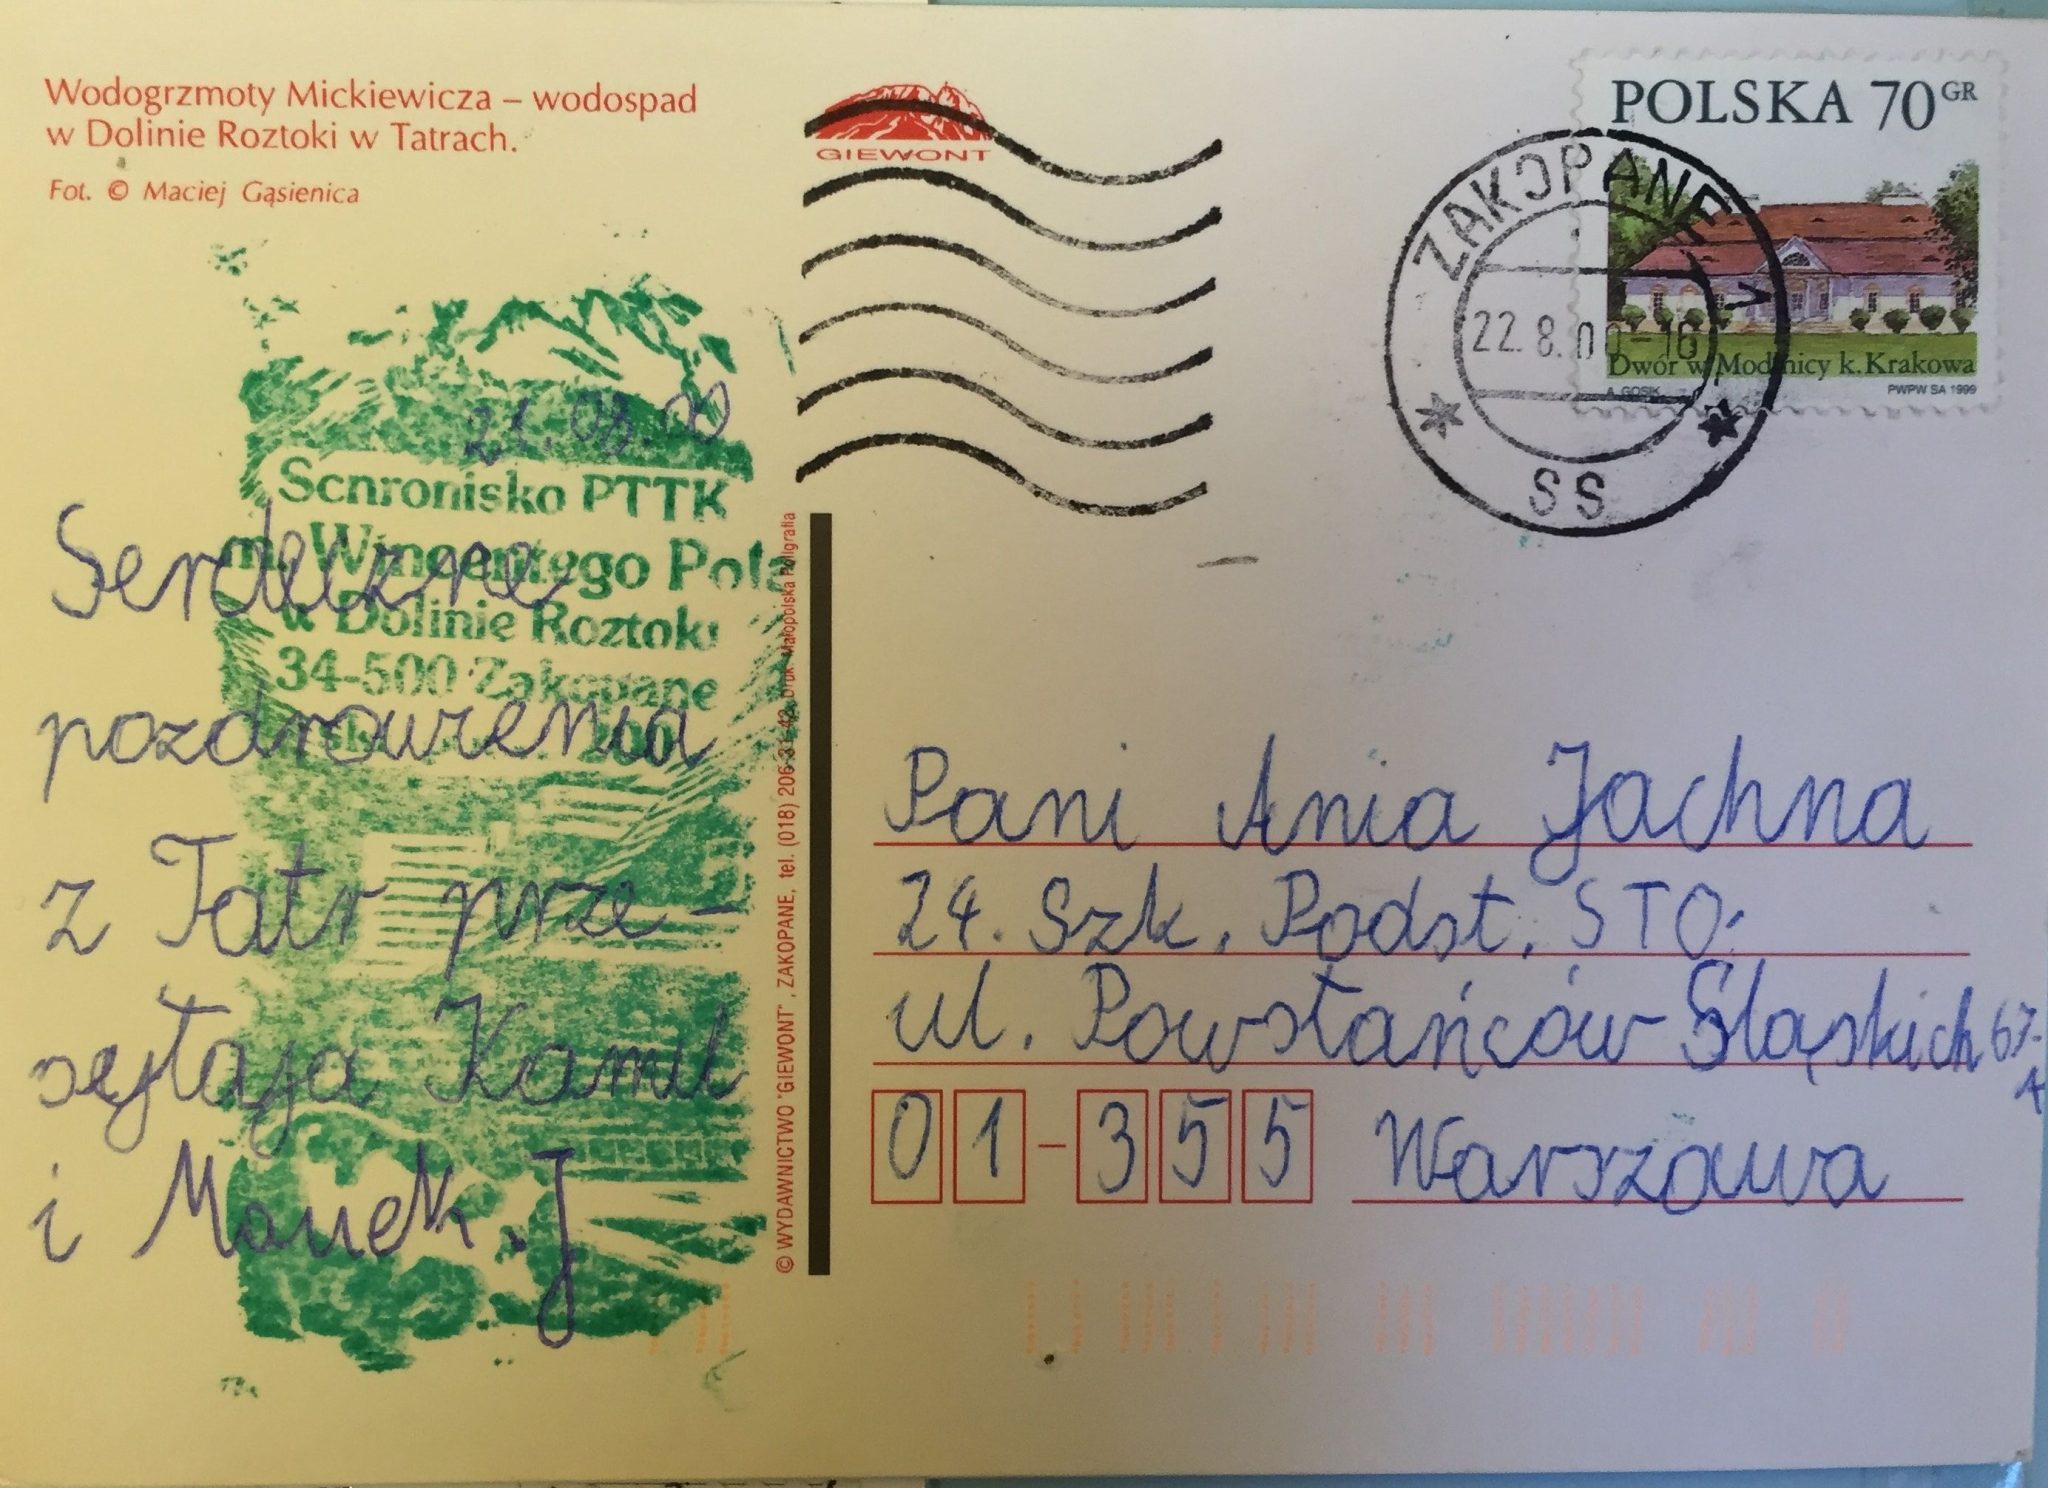 Wodogrzmoty Mickiewicza – wodospad
w Dolinie Roztoki w Tatrach.
Fot. © Maciej Gąsienica
GIEWONT
POLSKA 70 GR
Dwór w Modlnicy k. Krakowa
A. GOSIK
PWPW SA 1999
ZAKOPANE
22.8.00-16
SS
21.08.00
Schronisko PTTK
m. Wincentego Pola
w Dolinie Roztoki
34-500 Zakopane
Serdeczne
pozdrowienia
z Tatr prze-
sęłaja Kamil
i Maciek.J
© WYDAWNICTWO "GIEWONT", ZAKOPANE, tel. (018) 206-31-42, Druk: Małopolska Poligrafia
Pani Ania Jachna
24. Szk. Podst. STO.
ul. Powstańców Śląskich 67-
A
01-355 Warszawa